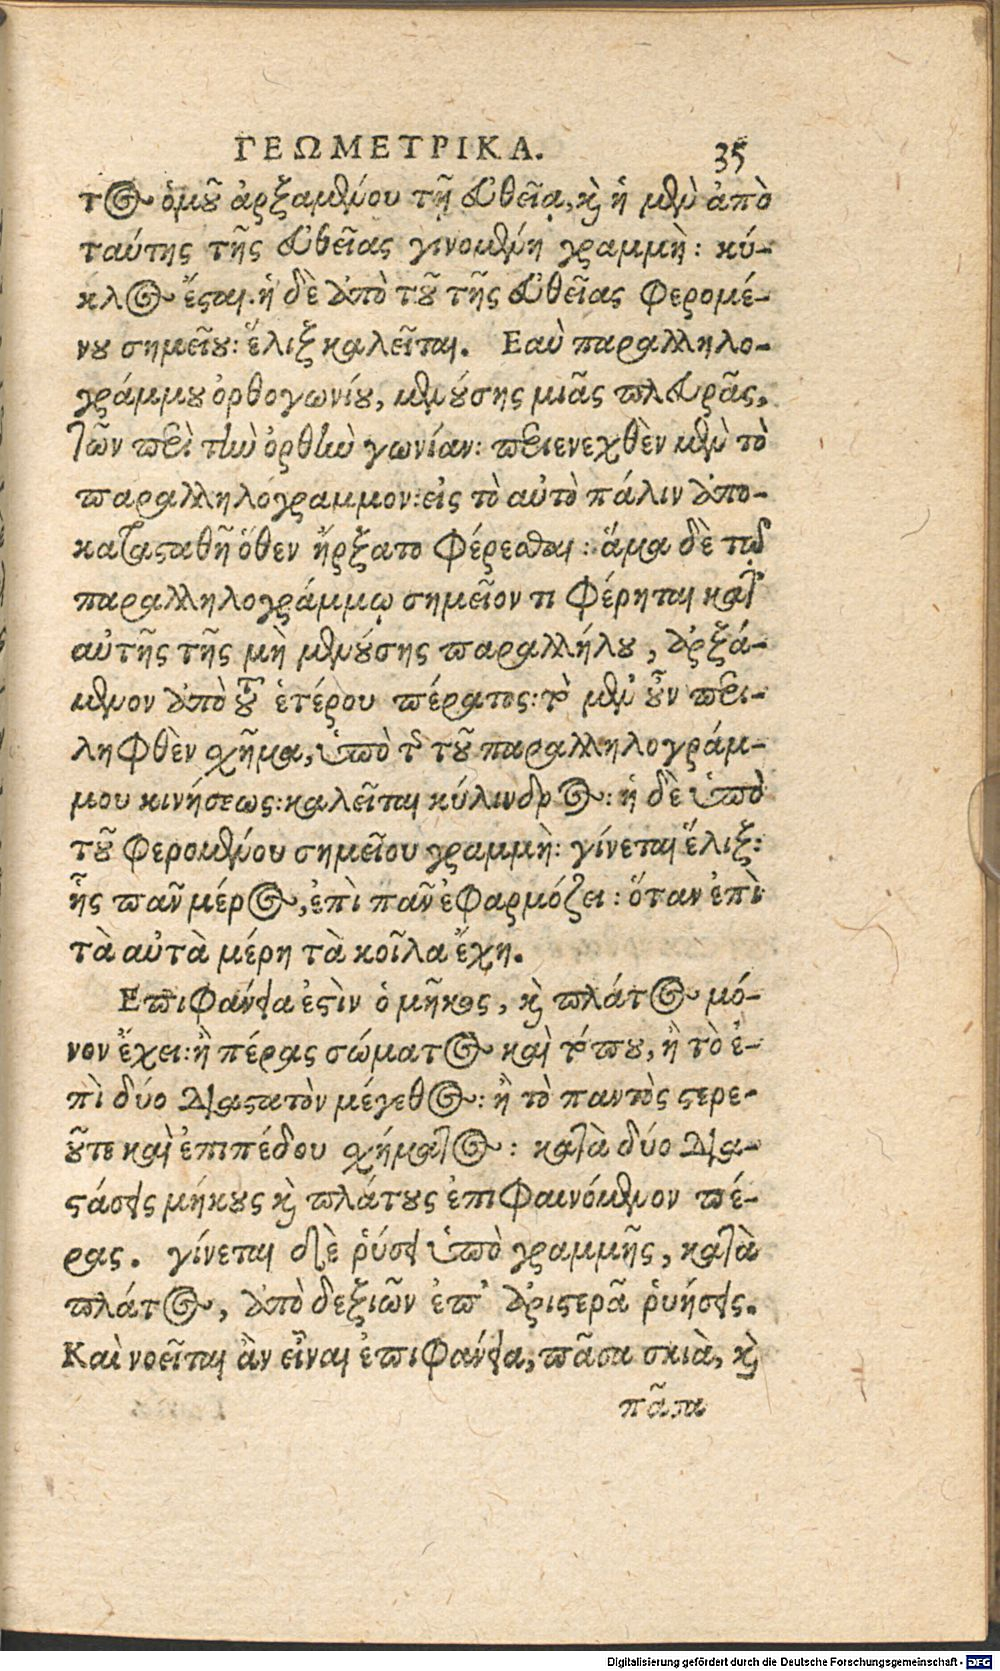 ΓΕΩΜΕΤΡΙΚΑ. 35
τος ὁμοῦ ἀρξαμένου τῇ εὐθείᾳ, καὶ ἡ μὲν ἀπὸ
ταύτης τῆς εὐθείας γινομένη γραμμὴ: κύ-
κλος ἔσται. ἡ δὲ ὑπὸ τοῦ τῆς εὐθείας φερομέ-
νου σημείου: ἕλιξ καλεῖται. Εαὺ παραλληλο-
γράμμου ὀρθογωνίου, μενούσης μιᾶς πλευρᾶς,
τῶν περὶ τὴν ὀρθὴν γωνίαν: περιενεχθὲν μὲν τὸ
παραλληλόγραμμον: εἰς τὸ αὐτὸ πάλιν ἀπο-
κατασταθῇ ὅθεν ἤρξατο φέρεσθαι: ἅμα δὲ τῷ
παραλληλογράμμῳ σημεῖον τι φέρηται κατ'
αὐτῆς τῆς μὴ μενούσης παραλλήλου, ἀρξά-
μενον ἀπὸ τοῦ ἑτέρου πέρατος: τὸ μὲν οὖν περι-
ληφθὲν σχῆμα, ὑπὸ τῆς τοῦ παραλληλογράμ-
μου κινήσεως: καλεῖται κύλινδρος: ἡ δὲ ὑπὸ
τοῦ φερομένου σημείου γραμμὴ: γίνεται ἕλιξ:
ἧς πᾶν μέρος, ἐπὶ πᾶν ἐφαρμόζει: ὅταν ἐπὶ
τὰ αὐτὰ μέρη τὰ κοῖλα ἔχη.
Επιφάνεια ἐστὶν ὁ μῆκος, καὶ πλάτος μό-
νον ἔχει: ἢ πέρας σώματος καὶ τόπου, ἢ τὸ ἐ-
πὶ δύο διαστατὸν μέγεθος: ἢ τὸ παντὸς στερε-
οῦ τε καὶ ἐπιπέδου σχήματος: κατὰ δύο δια-
στάσεις μήκους καὶ πλάτους ἐπιφαινόμενον πέ-
ρας. γίνεται δὲ ῥύσει ὑπὸ γραμμῆς, κατὰ
πλάτος, ἀπὸ δεξιῶν ἐπ' ἀριστερᾶ ῥυήσεις.
Καὶ νοεῖται ἂν εἶναι ἐπιφάνεια, πᾶσα σκιὰ, καὶ
πᾶσα
Digitalisierung gefördert durch die Deutsche Forschungsgemeinschaft - DFG